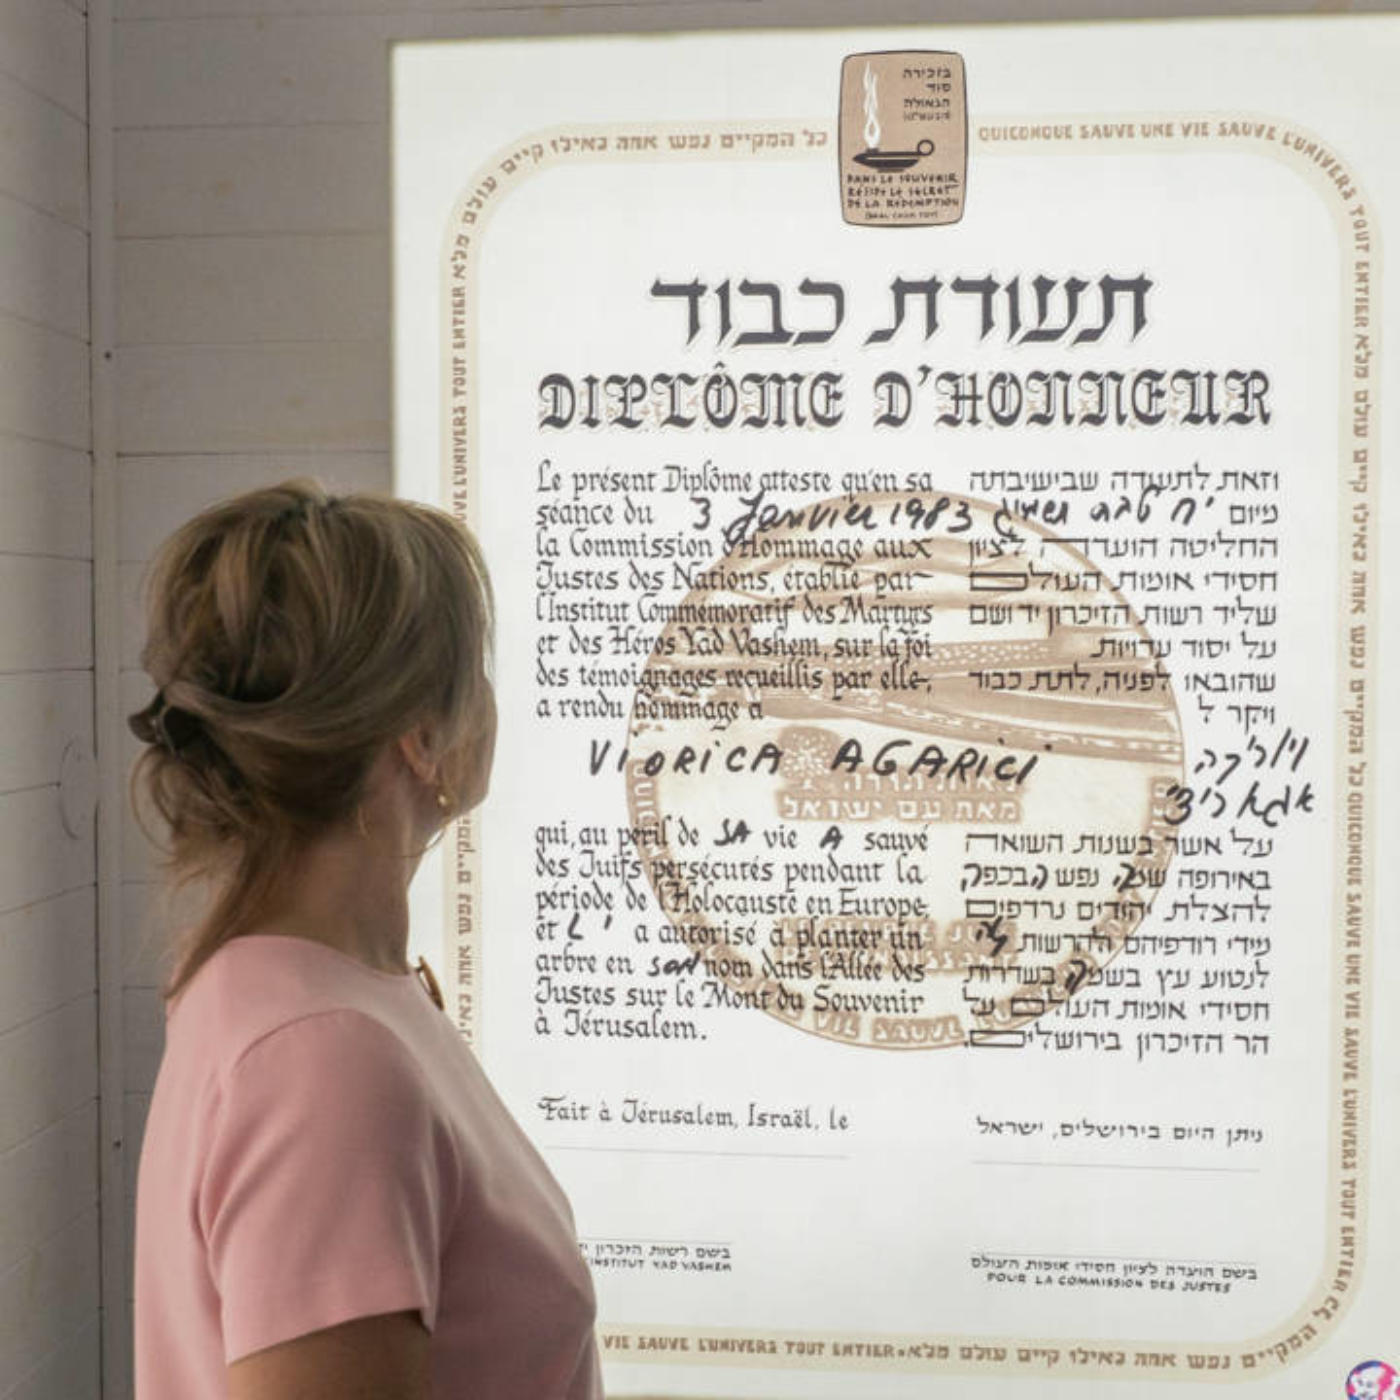 בזכירה
סוד
הגאולה
DANS LE SOUVENIR
RÉSIDE LE SECRET
DE LA RÉDEMPTION
(BAAL CHEM TOV)
כל המקיים נפש אחת כאילו קיים עולם מלא
QUICONQUE SAUVE UNE VIE SAUVE L'UNIVERS TOUT ENTIER
תעודת כבוד
DIPLÔME D'HONNEUR
Le présent Diplôme atteste qu'en sa
séance du 3 Janvier 1983
la Commission d'Hommage aux
Justes des Nations, établie par
l'Institut Commémoratif des Martyrs
et des Héros Yad Vashem, sur la foi
des témoignages recueillis par elle,
a rendu hommage à
VIORICA AGARICI
qui, au péril de SA vie A sauvé
des Juifs persécutés pendant la
période de l'Holocauste en Europe,
et L' a autorisé à planter un
arbre en SON nom dans l'Allée des
Justes sur le Mont du Souvenir
à Jérusalem.
Fait à Jérusalem, Israël, le
וזאת לתעודה שבישיבתה
מיום י"ח טבת תשמ"ג
החליטה הועדה לציון
חסידי אומות העולם
שליד רשות הזיכרון יד ושם
על יסוד עדויות
שהובאו לפניה, לתת כבוד
ויקר ל
ויוריקה
אגאריצ'י
על אשר בשנות השואה
באירופה שמה נפשה בכפה
להצלת יהודים נרדפים
מידי רודפיהם ולהרשות לה
לנטוע עץ בשמה בשדרות
חסידי אומות העולם על
הר הזיכרון בירושלים.
ניתן היום בירושלים, ישראל
בשם רשות הזכרון
INSTITUT YAD VASHEM
בשם הועדה לציון חסידי אומות העולם
POUR LA COMMISSION DES JUSTES
VIE SAUVE L'UNIVERS TOUT ENTIER • כל המקיים נפש אחת כאילו קיים עולם מלא